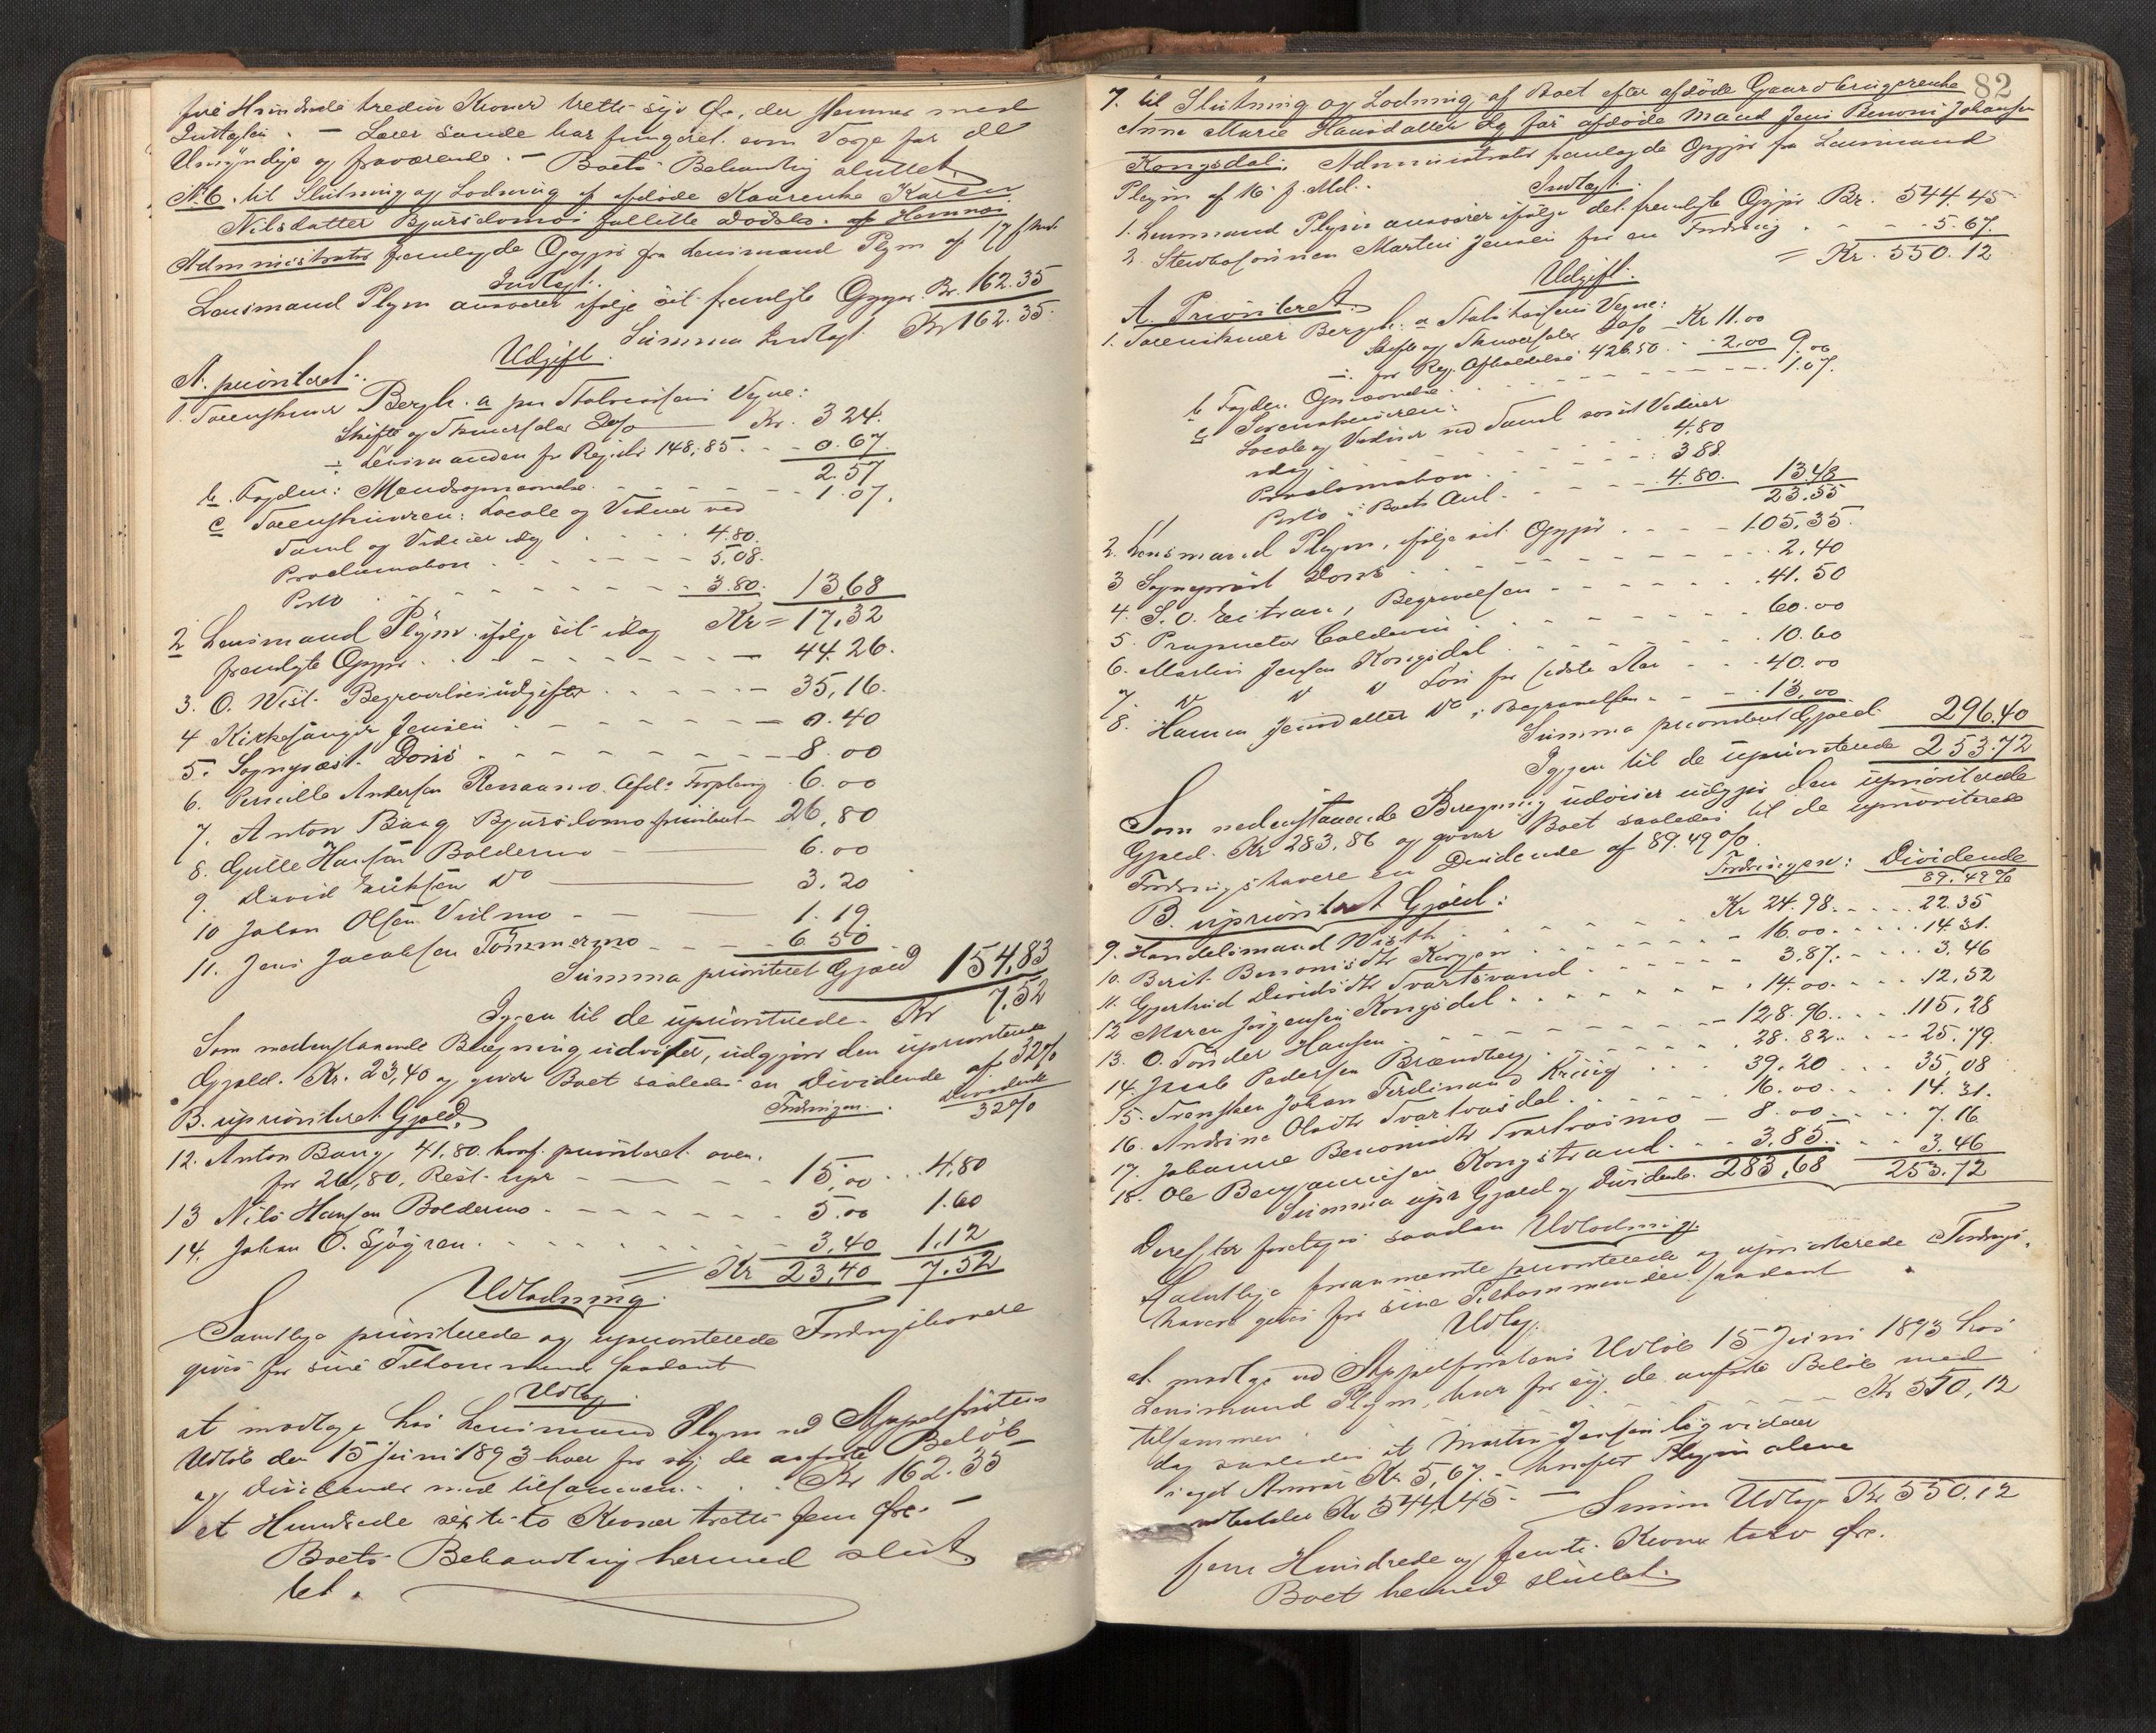 fire Hundrede tredive Kroner tretti syv Øre, der stemmer med
Indtægten. – Lærer Sande har fungeret som Værge for de
Umyndige og fraværende. – Boets Behandling sluttet.
N. 6. til Slutning og Lodning af afdøde Kaarenke Karen
Nilsdatter Bjurselvmo's fallitte Dødsbo. af Hemnæs
Administrator fremlagde Opgjør fra Lensmand Plym af 17 f. Md.
Indtægt:
Lensmand Plym ansvarer ifølge sit fremlagte Opgjør. Kr. 162.35
Summa Indtægt Kr 162.35.
Udgift.
A. prioritert:
1. Sorenskriver Bergh. a paa Statskassens Vegne:
Skifte og Skuersalær Do/o Kr. 3 24.
÷ Lensmanden for Regist. 148.85. - - 0.67.
2.57
b. Fogden: Mandsopnævnelse. - - - - - - 1.07.
c Sorenskriveren: Locale og Vidner ved
Saml og Vidner idag . . . 4.80.
Proclamation . . - - - - 5.08.
Porto . - - - - - - 3.80. 13,68
Kr = 17,32
2 Lensmand Plym ifølge sit idag
fremlagte Opgjør . . - - - - - - 44.26.
3. O. Wist. Begravelsesudgifter . . . - - - 35,16.
4 Kirkesanger Jensen - - - - - - 0.40
5. Sogneprest Doris . - - - - - - - 8.00
6. Pernille Andersen Renaamo. Afd. Forpleining 6.00
7. Anton Bang Bjurselvmo prioritert 26,80
8. Gulle Hansen Boldermo 6.00
9. David Eriksen Do 3.20
10 Johan Olsen Vielmo - - - 1.19.
11. Jens Jacobsen Tømmermo - - - - 6.50
Summa prioritert Gjæld 154,83
Igjen til de uprioriterede. Kr 7,52
Som nedenstaaende Beregning udviser, udgjør den uprioriterede
Gjæld. Kr. 23,40 og giver Boet saaledes en Dividende af 32%
B. uprioritert Gjæld. Fordringer. Dividende
32%
12. Anton Bang, 41.80. hvoraf prioritert oven.
for 26,80. Rest. upr - - - - - 15,00 . . 4,80
13 Nils Hansen Boldermo - - - - - - 5.00 1.60
14. Johan O. Sjøgren. - - - - - - 3,40 1,12
= Kr 23,40 7.52
Udlodning.
Samtlige prioriterede og uprioriterede Fordringshavere
gives for sine Tilkommende saadant
Udlæg.
at modtage hos Lensmand Plym ved Appelfristens
Udløb den 15 Juni 1893 hver for sig de anførte Beløb
og Dividender med tilsammen. . . . Kr 162.35
et Hundrede sexti-to Kroner tretti fem Øre. –
Boets Behandling hermed slut
tet.
82
7. til Slutning og Lodning af Boet efter afdøde Gaardbrugerenke
Anne Marie Hansdatter og før afdøde Mand Jens Benoni Johansen
Kongsdal. Administrator fremlagde Opgjør fra Lensmand
Plym af 16 f. Md..
Indtægt:
1. Lensmand Plym ansvarer ifølge det fremlagte Opgjør Kr. 544.45
2. Martin Jensen for en Fordring . - - - 5.67.
= Kr. 550.12
Udgift.
A. Prioritert.
1. Sorenskriver Bergh: a Statskassens Vegne:
Skifte og Skuersalær Do/o Kr 11.00
÷ for Reg. Afholdelse 426.50 . - 2,00 9.00
b Fogden Opnævnelse - - - - - - - - 1.07.
c Sorenskriveren:
Locale og Vidner ved Saml samt Vidner
idag - - - - - 4.80
Proclamation . . - - - - 3 88
Porto i Boets Anl. . - - - - 4.80. 13.48
23.55
2. Lensmand Plym, ifølge sit Opgjør . . - - 105,35.
3 Sogneprest Doris . - - - - - - - 2.40
4. S. O. Leitran, Begravelsen - - - - 41.50
5. Proprietær Coldevin - - - - - - - 60.00
6. Martin Jensen Kongsdal . - - - - 10.60
7. " " " Løn for sidste Aar - - 40.00
8. Hanna Jensdatter Do i Begravelsen - - - 13,00
Summa prioritert Gjæld 296.40
Igjen til de uprioriterede 253.72
Som nedenstaaende Beregning udviser udgjør den uprioriterede
Gjæld. Kr 283,86 og giver Boet saaledes til de uprioriterede
Fordringshavere en Dividende af 89.49 %.
B. uprioritert Gjæld: Fordringer: Dividende
89.49%
9. Handelsmand Wisth . - - - - - Kr 24.98. - - - 22.35
10. Berit Benonisdtr Korgen - - - - - - 16.00 . . . . 14.31.
11. Gjertrud Davidsdtr Svartsvand . - - - - 3.87. . - - 3.46
12 Maren Jørgensen Kongsdal . . . . . . . 14.00 . - - - 12.52
13. O. Tønder Hansen - - - - - - - 128.96. . . . 115,28
14. Jacob Pedersen Brændberg . - - - - - 28.82 . . - 25.79.
15. Svensken Johan Ferdinand Kriig . . . 39.20 . . . 35,08
16. Andrine Olsdtr Svartvasdal . - - - - 16.00 . . . 14.31.
17. Johanne Benonisdtr Svartvasmo - 8.00 . . . 7.16
18. Ole Benjaminsen Kongstrand . . - 3,85 . . - - 3.46
Summa upr Gjæld og Dividende. 283,68 253.72
Derefter foretoges saadan Udlodning.
Samtlige forannævnte prioriterede og uprioriterede Fordrings-
havere gives for sine Tilkommender saadant
Udlæg:
at modtage ved Appelfristens Udløb 15 Juni 1893 hos
Lensmand Plym, hver for sig, de anførte Beløb med
tilsammen . . . . . . Kr 550,12
dog saaledes at Martin Jensen liqviderer
i eget Ansvar Kr 5,67. – hvorfor Plym alene
udbetaler Kr 544,45. – Summa Udlæg Kr 550.12
fem Hundrede og femti Kroner tolv Øre.
Boet hermed sluttet.